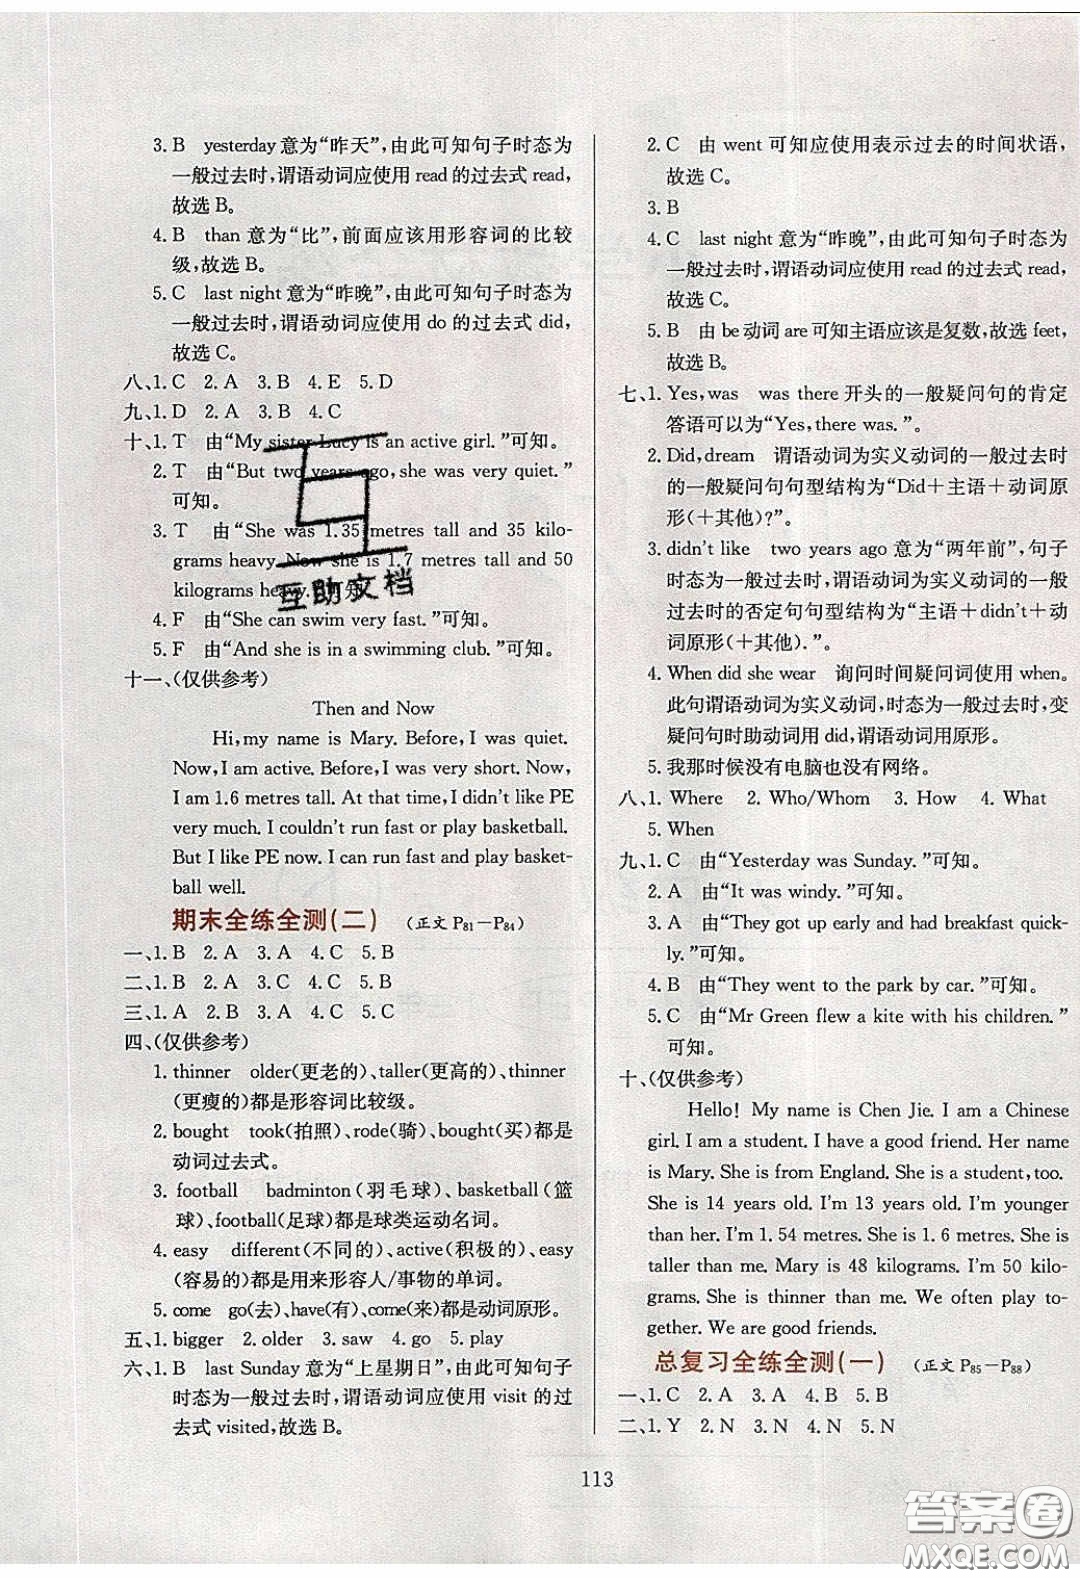 3. B　yesterday意为“昨天”,由此可知句子时态为
一般过去时,谓语动词应使用 read 的过去式 read,
故选 B。
4. B　than 意为“比”,前面应该用形容词的比较
级,故选 B。
5. C　last night 意为“昨晚”,由此可知句子时态为
一般过去时,谓语动词应使用 do 的过去式 did,
故选 C。
八、1. C　2. A　3. B　4. E　5. D
九、1. D　2. A　3. B　4. C
十、1. T　由“My sister Lucy is an active girl.”可知。
2. T　由“But two years ago, she was very quiet.”
可知。
3. T　由“She was 1.35 metres tall and 35 kilo-
grams heavy. Now she is 1.7 metres tall and 50
kilograms heavy.”可知。
4. F　由“She can swim very fast.”可知。
5. F　由“And she is in a swimming club.”可知。
十一、(仅供参考)
Then and Now
Hi, my name is Mary. Before, I was quiet.
Now, I am active. Before, I was very short. Now,
I am 1.6 metres tall. At that time, I didn't like PE
very much. I couldn't run fast or play basketball.
But I like PE now. I can run fast and play basket-
ball well.
期末全练全测(二)　(正文 P81－P84)
一、1. B　2. A　3. A　4. C　5. B
二、1. B　2. A　3. C　4. C　5. B
三、1. A　2. B　3. A　4. C　5. C
四、(仅供参考)
1. thinner　older(更老的)、taller(更高的)、thinner
(更瘦的)都是形容词比较级。
2. bought　took(拍照)、rode(骑)、bought(买)都是
动词过去式。
3. football　badminton(羽毛球)、basketball(篮
球)、football(足球)都是球类运动名词。
4. easy　different(不同的)、active(积极的)、easy
(容易的)都是用来形容人/事物的单词。
5. come　go(去)、have(有)、come(来)都是动词原形。
五、1. bigger　2. older　3. saw　4. go　5. play
六、1. B　last Sunday 意为“上星期日”,由此可知句子
时态为一般过去时,谓语动词应使用 visit 的过
去式 visited,故选 B。
2. C　由 went 可知应使用表示过去的时间状语,
故选 C。
3. B
4. C　last night 意为“昨晚”,由此可知句子时态为
一般过去时,谓语动词应使用 read 的过去式 read,
故选 C。
5. B　由 be 动词 are 可知主语应该是复数,故选 feet,
故选 B。
七、1. Yes, was　was there 开头的一般疑问句的肯定
答语可以为“Yes, there was.”。
2. Did, dream　谓语动词为实义动词的一般过去时
的一般疑问句句型结构为“Did＋主语＋动词原
形(＋其他)?”。
3. didn't like　two years ago 意为“两年前”,句子
时态为一般过去时,谓语动词为实义动词的一般
过去时的否定句句型结构为“主语＋didn't＋动
词原形(＋其他).”。
4. When did she wear　询问时间疑问词使用 when。
此句谓语动词为实义动词,时态为一般过去时,变
疑问句时助动词用 did,谓语动词用原形。
5. 我那时候没有电脑也没有网络。
八、1. Where　2. Who/Whom　3. How　4. What
5. When
九、1. C　由“Yesterday was Sunday.”可知。
2. A　由“It was windy.”可知。
3. A　由“They got up early and had breakfast quick-
ly.”可知。
4. B　由“They went to the park by car.”可知。
5. C　由“Mr Green flew a kite with his children.”
可知。
十、(仅供参考)
Hello! My name is Chen Jie. I am a Chinese
girl. I am a student. I have a good friend. Her name
is Mary. She is from England. She is a student, too.
She is 14 years old. I'm 13 years old. I'm younger
than her. I'm 1.54 metres. She is 1.6 metres. She is
taller than me. Mary is 48 kilograms. I'm 50 kilo-
grams. She is thinner than me. We often play to-
gether. We are good friends.
总复习全练全测(一)　(正文 P85－P88)
一、1. C　2. A　3. A　4. B　5. B
二、1. Y　2. N　3. N　4. N　5. N
113
互助文档
答案圈
MXQE.COM